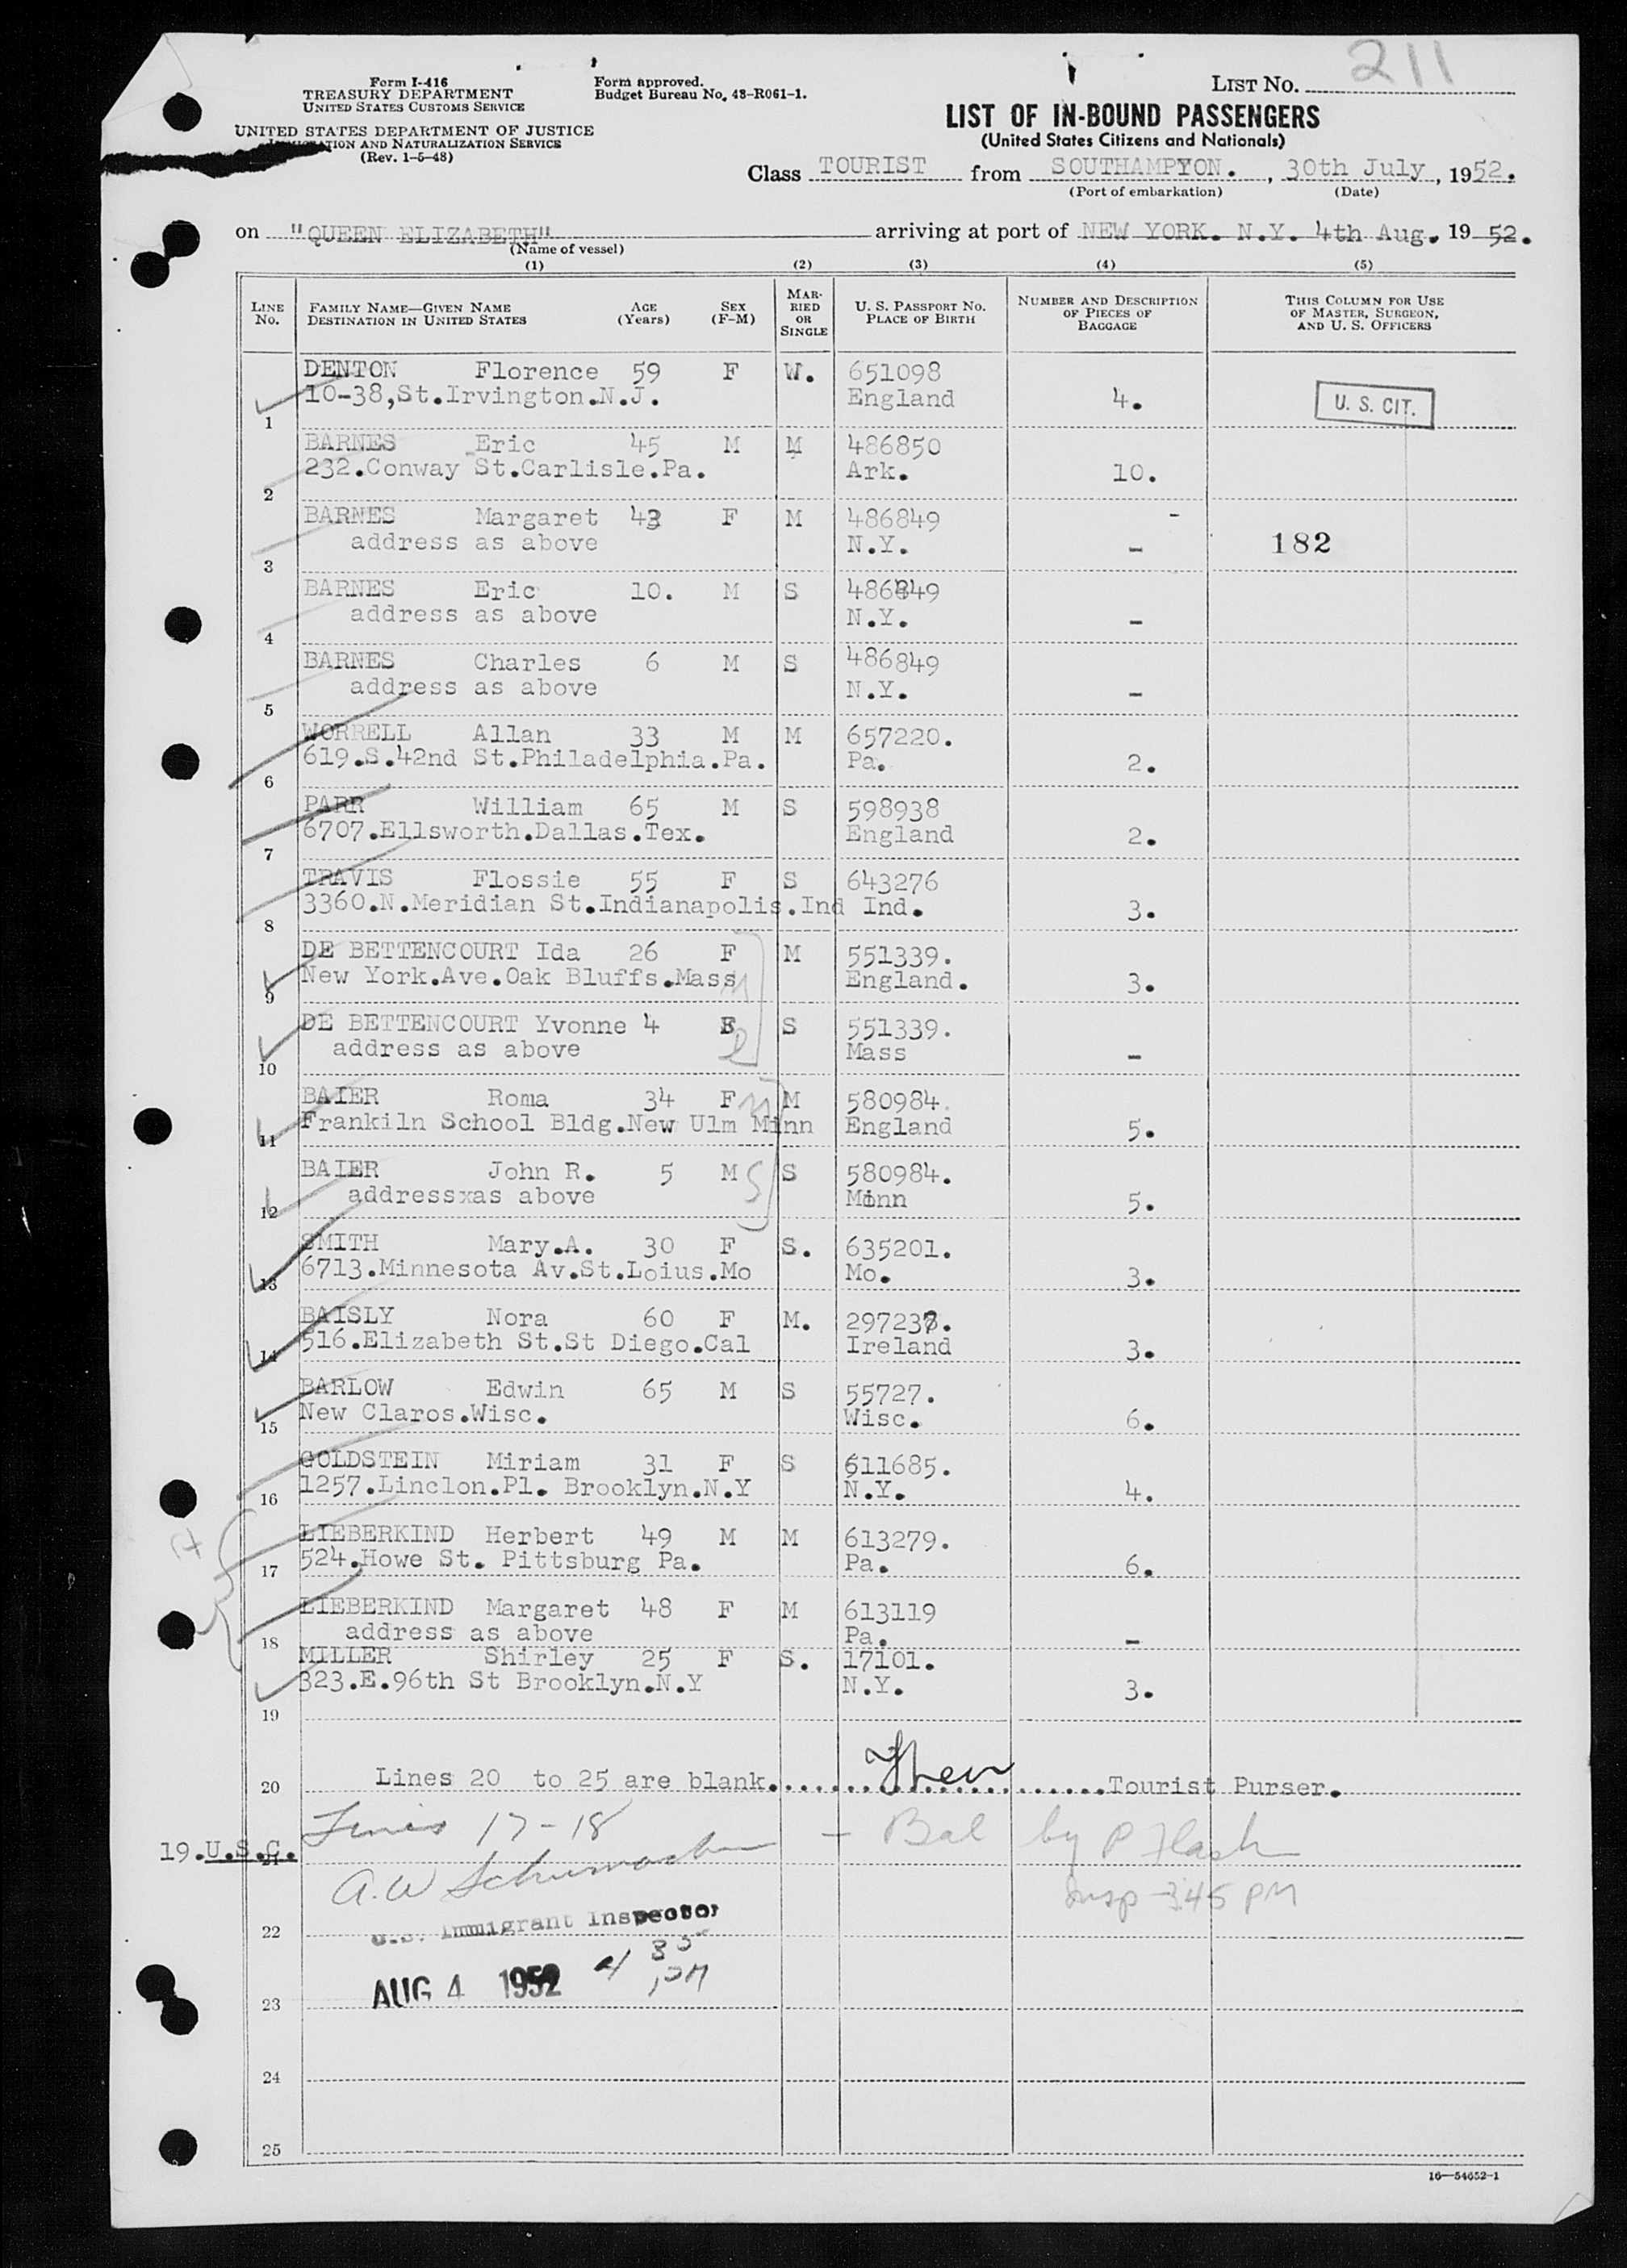 Form I-416
TREASURY DEPARTMENT
UNITED STATES CUSTOMS SERVICE
UNITED STATES DEPARTMENT OF JUSTICE
AND NATURALIZATION SERVICE
(Rev. 1-5-48)
Form approved.
Budget Bureau No. 43-R061-1.
LIST NO. 211
LIST OF IN-BOUND PASSENGERS
(United States Citizens and Nationals)
Class TOURIST from SOUTHAMPYON. , 30th July , 1952.
(Port of embarkation) (Date)
on "QUEEN ELIZABETH" arriving at port of NEW YORK. N.Y. 4th Aug. 19 52.
(Name of vessel)
(1) (2) (3) (4) (5)
LINE NO. FAMILY NAME—GIVEN NAME DESTINATION IN UNITED STATES AGE (Years) SEX (F-M) MARRIED OR SINGLE U. S. PASSPORT NO. PLACE OF BIRTH NUMBER AND DESCRIPTION OF PIECES OF BAGGAGE THIS COLUMN FOR USE OF MASTER, SURGEON, AND U. S. OFFICERS
DENTON Florence 59 F W. 651098
1 10-38,St.Irvington.N.J. England 4. U. S. CIT.
BARNES Eric 45 M M 486850
2 232.Conway St.Carlisle.Pa. Ark. 10.
BARNES Margaret 43 F M 486849 -
3 address as above N.Y. - 182
BARNES Eric 10. M S 486849
4 address as above N.Y. -
BARNES Charles 6 M S 486849
5 address as above N.Y. -
WORRELL Allan 33 M M 657220.
6 619.S.42nd St.Philadelphia.Pa. Pa. 2.
PARR William 65 M S 598938
7 6707.Ellsworth.Dallas.Tex. England 2.
TRAVIS Flossie 55 F S 643276
8 3360.N.Meridian St.Indianapolis.Ind Ind. 3.
DE BETTENCOURT Ida 26 F M 551339.
9 New York.Ave.Oak Bluffs.Mass England. 3.
DE BETTENCOURT Yvonne 4 F S 551339.
10 address as above Mass -
BAIER Roma 34 F M 580984.
11 Frankiln School Bldg.New Ulm Minn England 5.
BAIER John R. 5 M S 580984.
12 addressxas above Minn 5.
SMITH Mary.A. 30 F S. 635201.
13 6713.Minnesota Av.St.Loius.Mo Mo. 3.
BAISLY Nora 60 F M. 297238.
14 516.Elizabeth St.St Diego.Cal Ireland 3.
BARLOW Edwin 65 M S 55727.
15 New Claros.Wisc. Wisc. 6.
GOLDSTEIN Miriam 31 F S 611685.
16 1257.Linclon.Pl. Brooklyn.N.Y N.Y. 4.
LIEBERKIND Herbert 49 M M 613279.
17 524.Howe St. Pittsburg Pa. Pa. 6.
LIEBERKIND Margaret 48 F M 613119
18 address as above Pa. -
MILLER Shirley 25 F S. 17101.
19 323.E.96th St Brooklyn.N.Y N.Y. 3.
20 Lines 20 to 25 are blank. Tourist Purser.
Lines 17-18 - Bal by P Flash
19.U.S.C. 21
A.W Schumacher Insp 345 PM
22 U.S. Immigrant Inspector
4 35 PM
23 AUG 4 1952
24
25
16—54652-1